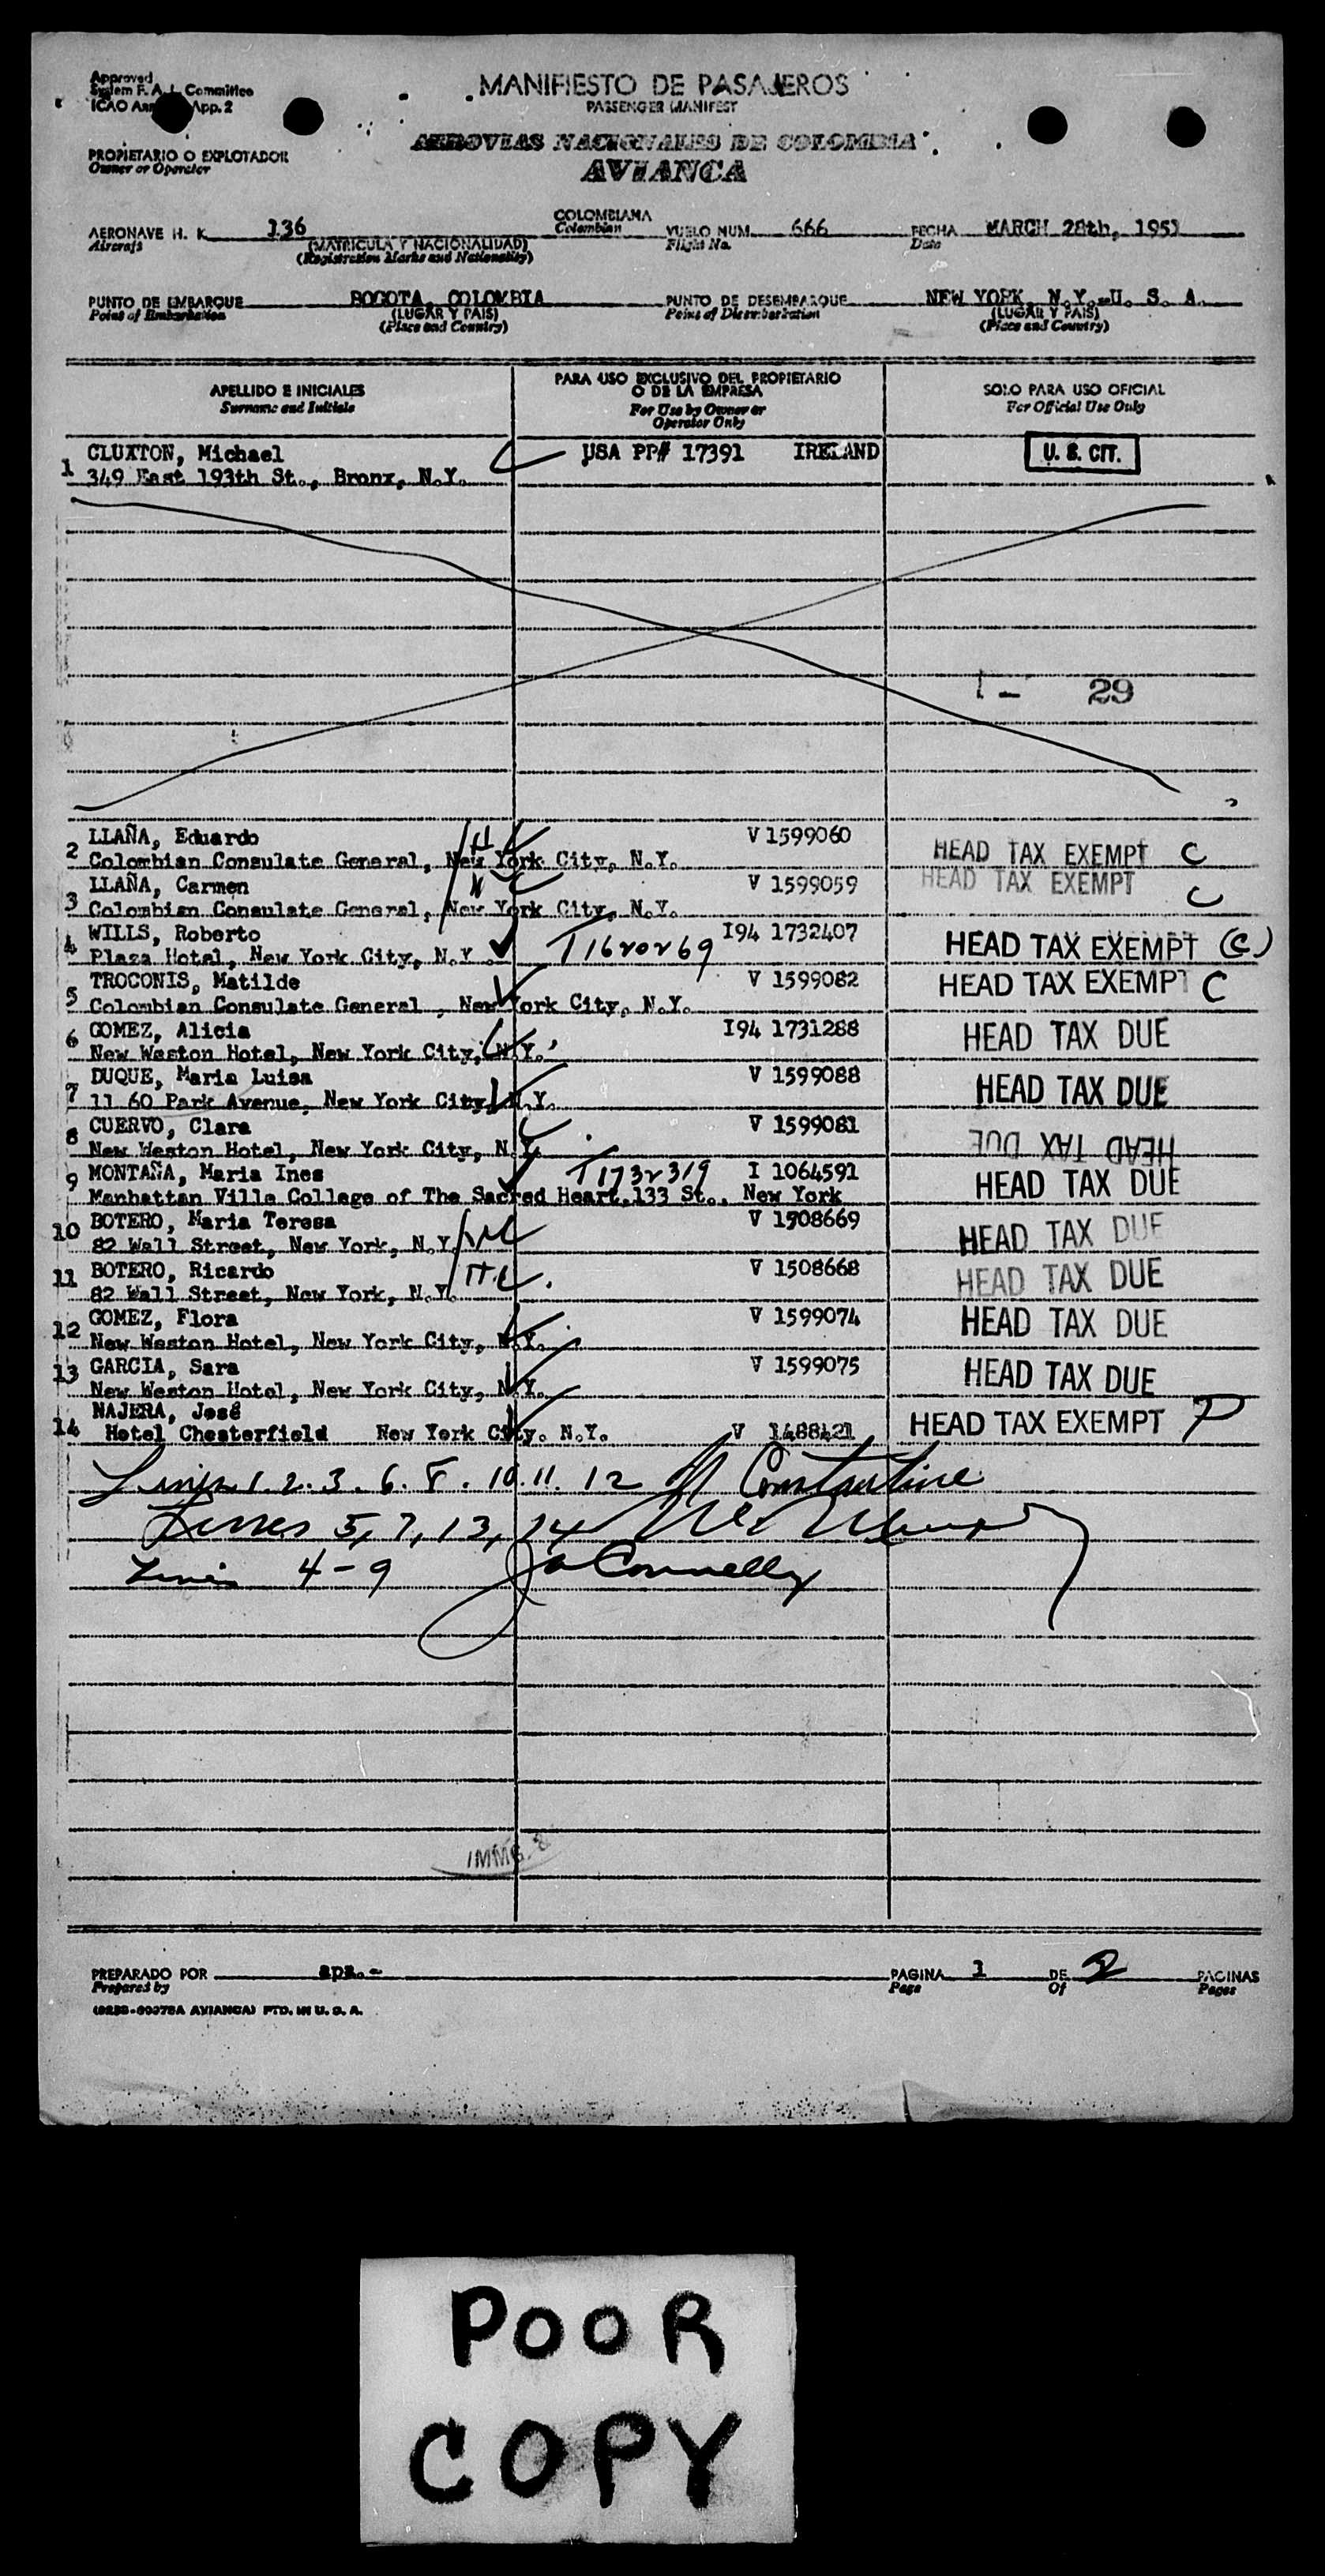 Approved
System F. A. L. Committee
ICAO App. 2
MANIFIESTO DE PASAJEROS
PASSENGER MANIFEST
AEROVIAS NACIONALES DE COLOMBIA
AVIANCA
PROPIETARIO O EXPLOTADOR
Owner or Operator
AERONAVE H. K. 136 COLOMBIANA VUELO NUM. 666 FECHA MARCH 28th, 1951
Aircraft (MATRICULA Y NACIONALIDAD) Colombian Flight No. Date
(Registration Marks and Nationality)
PUNTO DE EMBARQUE BOGOTA, COLOMBIA PUNTO DE DESEMBARQUE NEW YORK, N.Y.-U. S. A.
Point of Embarkation (LUGAR Y PAIS) Point of Disembarkation (LUGAR Y PAIS)
(Place and Country) (Place and Country)
APELLIDO E INICIALES PARA USO EXCLUSIVO DEL PROPIETARIO O DE LA EMPRESA SOLO PARA USO OFICIAL
Surname and Initials For Use by Owner or Operator Only For Official Use Only
CLUXTON, Michael USA PP# 17391 IRELAND U. S. CIT.
1 349 East 193th St., Bronx, N.Y.
1 - 29
LLAÑA, Eduardo H V 1599060 HEAD TAX EXEMPT C
2 Colombian Consulate General, New York City, N.Y.
LLAÑA, Carmen V 1599059 HEAD TAX EXEMPT C
3 Colombian Consulate General, New York City, N.Y.
WILLS, Roberto I94 1732407 HEAD TAX EXEMPT (C)
4 Plaza Hotel, New York City, N.Y. T1620269
TROCONIS, Matilde V 1599082 HEAD TAX EXEMPT C
5 Colombian Consulate General, New York City, N.Y.
GOMEZ, Alicia I94 1731288 HEAD TAX DUE
6 New Weston Hotel, New York City, N.Y.
DUQUE, Maria Luisa V 1599088 HEAD TAX DUE
7 11 60 Park Avenue, New York City, N.Y.
CUERVO, Clara V 1599081 HEAD TAX DUE
8 New Weston Hotel, New York City, N.Y.
MONTAÑA, Maria Ines T1732319 I 1064591 HEAD TAX DUE
9 Manhattan Ville College of The Sacred Heart.133 St., New York
BOTERO, Maria Teresa V 1508669 HEAD TAX DUE
10 82 Wall Street, New York, N.Y.
BOTERO, Ricardo V 1508668 HEAD TAX DUE
11 82 Wall Street, New York, N.Y.
GOMEZ, Flora V 1599074 HEAD TAX DUE
12 New Weston Hotel, New York City, N.Y.
GARCIA, Sara V 1599075 HEAD TAX DUE
13 New Weston Hotel, New York City, N.Y.
NAJERA, José HEAD TAX EXEMPT P
14 Hotel Chesterfield New York City. N.Y. V 1488421
Lines 1. 2. 3. 6. 8. 10. 11. 12 Constantine
Lines 5, 7, 13, 14
Lines 4-9 Connelly
IMMG.
PREPARADO POR apa.- PAGINA 1 DE 2 PAGINAS
Prepared by Page Of Pages
AVIANCA) PTD. IN U. S. A.
POOR
COPY